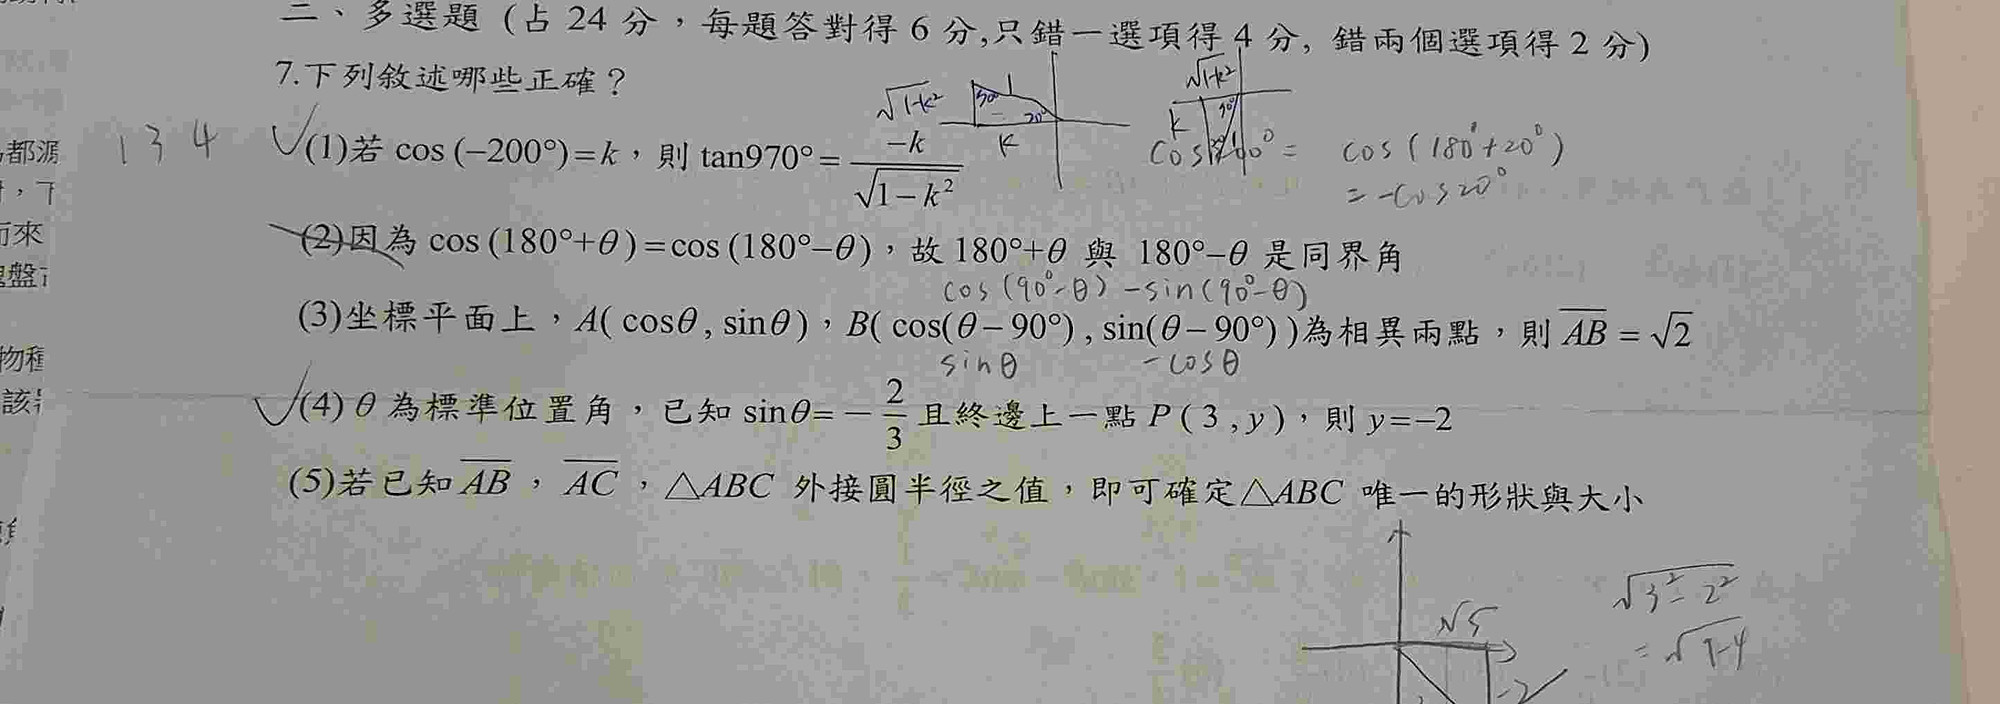 二、多選題 (占 24 分，每題答對得 6 分,只錯一選項得 4 分, 錯兩個選項得 2 分)
7.下列敘述哪些正確？
1 3 4
(1)若 cos (−200°)=k，則 tan970°= −k / √(1−k²)
√1-k²
1
20°
K
√1-k²
K
= cos (180°+20°)
= -cos20°
(2)因為 cos (180°+θ)=cos (180°−θ)，故 180°+θ 與 180°−θ 是同界角
cos (90°-θ) -sin(90°-θ)
(3)坐標平面上，A( cosθ , sinθ )，B( cos(θ−90°) , sin(θ−90°) )為相異兩點，則 AB = √2
sinθ -cosθ
(4) θ 為標準位置角，已知 sinθ= − 2/3 且終邊上一點 P ( 3 , y )，則 y=−2
(5)若已知 AB，AC，△ABC 外接圓半徑之值，即可確定△ABC 唯一的形狀與大小
√5
-2
√3²-2²
= √9-4
都
下
而來
盤
物種
該